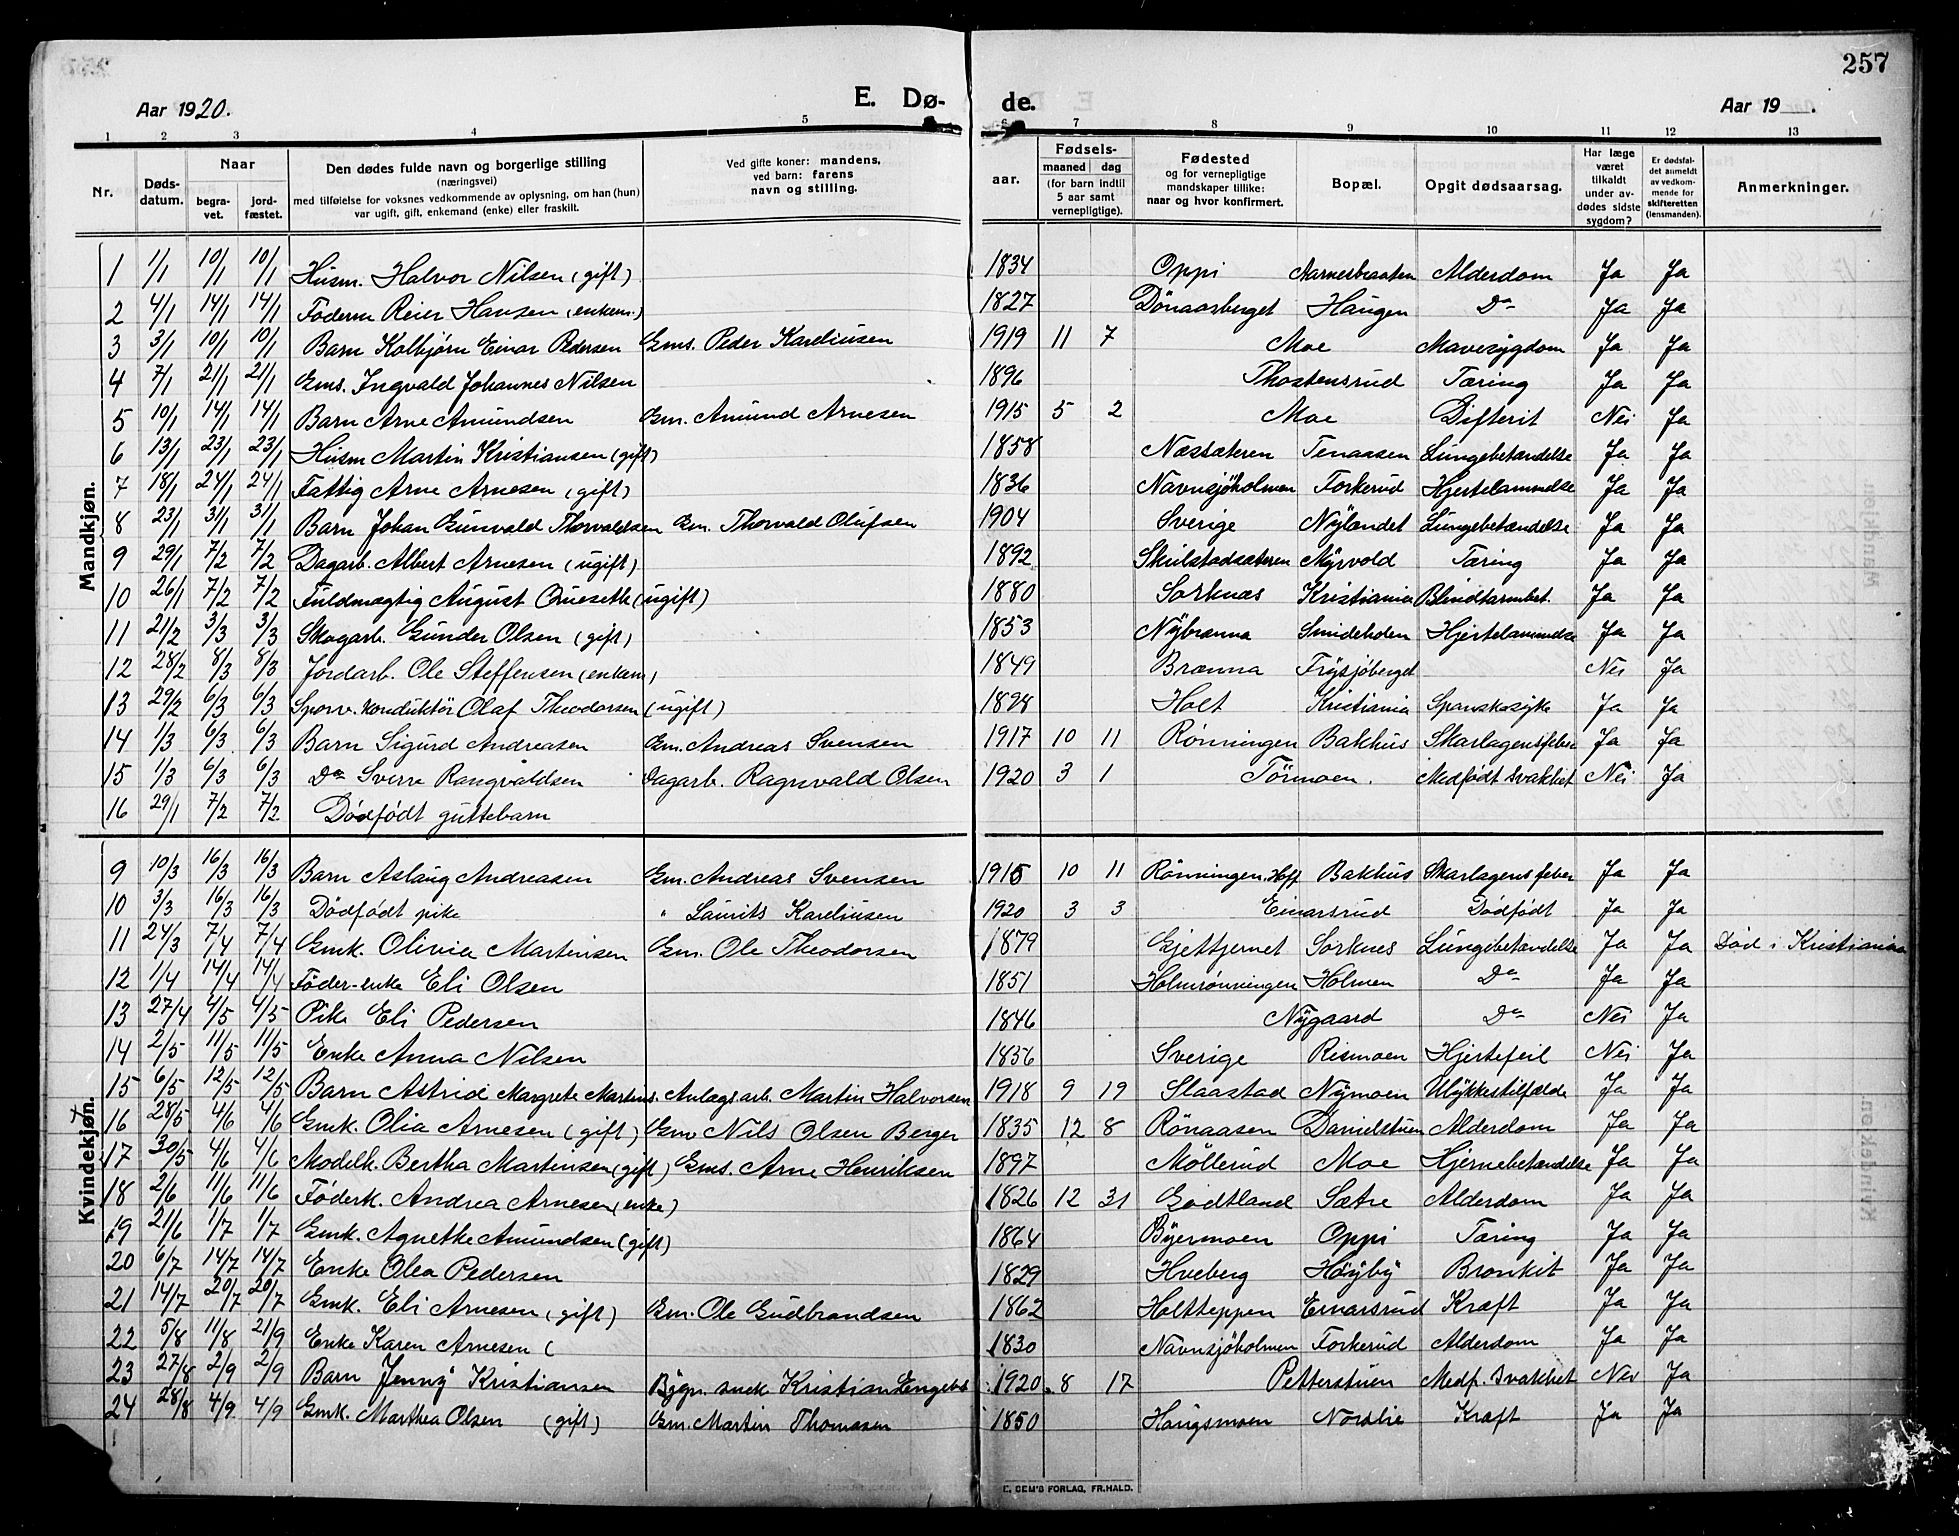 257
Aar 1920.
E. Dø-
de.
Aar 19 .
1 2 3 4 5 6 7 8 9 10 11 12 13
Nr.
Døds-
datum.
Naar
begra-
vet.
jord-
fæstet.
Den dødes fulde navn og borgerlige stilling
(næringsvei)
med tilføielse for voksnes vedkommende av oplysning, om han (hun)
var ugift, gift, enkemand (enke) eller fraskilt.
Ved gifte koner: mandens,
ved barn: farens
navn og stilling.
aar.
Fødsels-
maaned dag
(for barn indtil
5 aar samt
vernepligtige).
Fødested
og for vernepligtige
mandskaper tillike:
naar og hvor konfirmert.
Bopæl.
Opgit dødsaarsag.
Har læge
været
tilkaldt
under av-
dødes sidste
sygdom?
Er dødsfal-
det anmeldt
av vedkom-
mende for
skifteretten
(lensmanden).
Anmerkninger.
Mandkjøn.
1 1/1 10/1 10/1 Husm. Halvor Nilsen (gift) 1834 Oppi Aarnesbraaten Alderdom Ja Ja
2 4/1 14/1 14/1 Föderm Reier Hansen (enkem.) 1827 Dönaasberget Haugen Do Ja Ja
3 3/1 10/1 10/1 Barn Kolbjørn Einar Pedersen Gms. Peder Kareliusen 1919 11 7 Moe Mavesygdom Ja Ja
4 7/1 21/1 21/1 Gms. Ingvald Johannes Nilsen 1896 Thostensrud Tæring Ja Ja
5 10/1 14/1 14/1 Barn Arne Amundsen Gm. Amund Arnesen 1915 5 2 Moe Difterit Nei Ja
6 13/1 23/1 23/1 Husm Martin Kristiansen (gift) 1858 Næssæteren Tenaasen Lungebetændelse Ja Ja
7 18/1 24/1 24/1 Fattig Arne Arnesen (gift) 1836 Navnsjöholmen Forkerud Hjertelammelse Ja Ja
8 23/1 31/1 31/1 Barn Johan Gunvald Thorvaldsen Gm. Thorvald Olufsen 1904 Sverige Nylændet Lungebetændelse Ja Ja
9 29/1 7/2 7/2 Dagarb. Albert Arnesen (ugift) 1892 Skulstadsæteren Myrvold Tæring Ja Ja
10 26/1 7/2 7/2 Fuldmægtig August Qveseth (ugift) 1880 Sorknæs Kristiania Blindtarmbet. Ja Ja
11 21/2 3/3 3/3 Skogarb. Gunder Olsen (gift) 1853 Nybrænna Smidehden Hjertelammelse Ja Ja
12 28/2 8/3 8/3 Jordarb. Ole Steffensen (enkem) 1849 Brænna Frysjöberget Nei Ja
13 29/2 6/3 6/3 Sporv. konduktör Olaf Theodorsen (ugift) 1898 Holt Kristiania Spanskesyke Ja Ja
14 1/3 6/3 6/3 Barn Sigurd Andreasen Gm. Andreas Svensen 1917 10 11 Rønningen Bakhus Skarlagensfeber Ja Ja
15 1/3 6/3 6/3 Do Sverre Rangvaldsen Dagarb. Ragnvald Olsen 1920 3 1 Törmoen. Medfødt svakhet Nei Ja
16 29/1 7/2 7/2 Dödfödt guttebarn
Kvindekjøn.
9 10/3 16/3 16/3 Barn Aslaug Andreasen Gm. Andreas Svensen 1915 10 11 Rønningen, Hoff Bakhus Skarlagensfeber Ja Ja
10 3/3 16/3 16/3 Dödfödt pike " Laurits Kareliusen 1920 3 3 Einarsrud Dödfödt Ja Ja
11 24/3 7/4 7/4 Gmk. Olivia Martinsen Gm. Ole Theodorsen 1879 Gjettjernet Sorknes Lungebetændelse Ja Ja Död i Kristiania
12 1/4 14/4 14/4 Föder-enke Eli Olsen 1851 Holmrønningen Holmen Do Ja Ja
13 27/4 4/5 4/5 Pike Eli Pedersen 1846 Nygaard Do Nei Ja
14 2/5 11/5 11/5 Enke Anna Nilsen 1836 Sverige Rismoen Hjertefeil Nei Ja
15 6/5 12/5 12/5 Barn Astrid Margrete Martins. Anlægsarb. Martin Halvorsen 1918 9 19 Slaastad Nymoen Ulykkestilfælde Ja Ja
16 28/5 4/6 4/6 Gmk. Olia Arnesen (gift) Gm Nils Olsen Berger 1835 12 8 Rönaasen Danielstuen Alderdom Ja Ja
17 30/5 4/6 4/6 Modelk. Bertha Martinsen (gift) Gms. Arne Henriksen 1897 Möllerud Moe Hjernebetændelse Ja Ja
18 2/6 11/6 11/6 Föderk. Andrea Arnesen (enke) 1826 12 31 Godtland Sætre Alderdom Ja Ja
19 21/6 1/7 1/7 Gmk. Agnethe Amundsen (gift) 1864 Byermoen Oppi Tæring Ja Ja
20 6/7 14/7 14/7 Enke Olea Pedersen 1829 Hveberg Høyby Bronkit Ja Ja
21 14/7 20/7 20/7 Gmk. Eli Arnesen (gift) Gm. Ole Gudbrandsen 1862 Holtteppen Einarsrud Kræft Ja Ja
22 5/8 11/8 21/9 Enke Karen Arnesen ( 1830 Navnsjöholmen Forkerud Alderdom Ja Ja
23 27/8 2/9 2/9 Barn Jenny Kristiansen Bygn. snek Kristian Engebrt 1920 8 17 Petterstuen Medf. Svakhet Nei Ja
24 28/8 4/9 4/9 Gmk. Marthea Olsen (gift) Gm. Martin Thomasen 1850 Haugsmoen Nordlie Kræft Ja Ja
E. SEM'S FORLAG, FR.HALD.